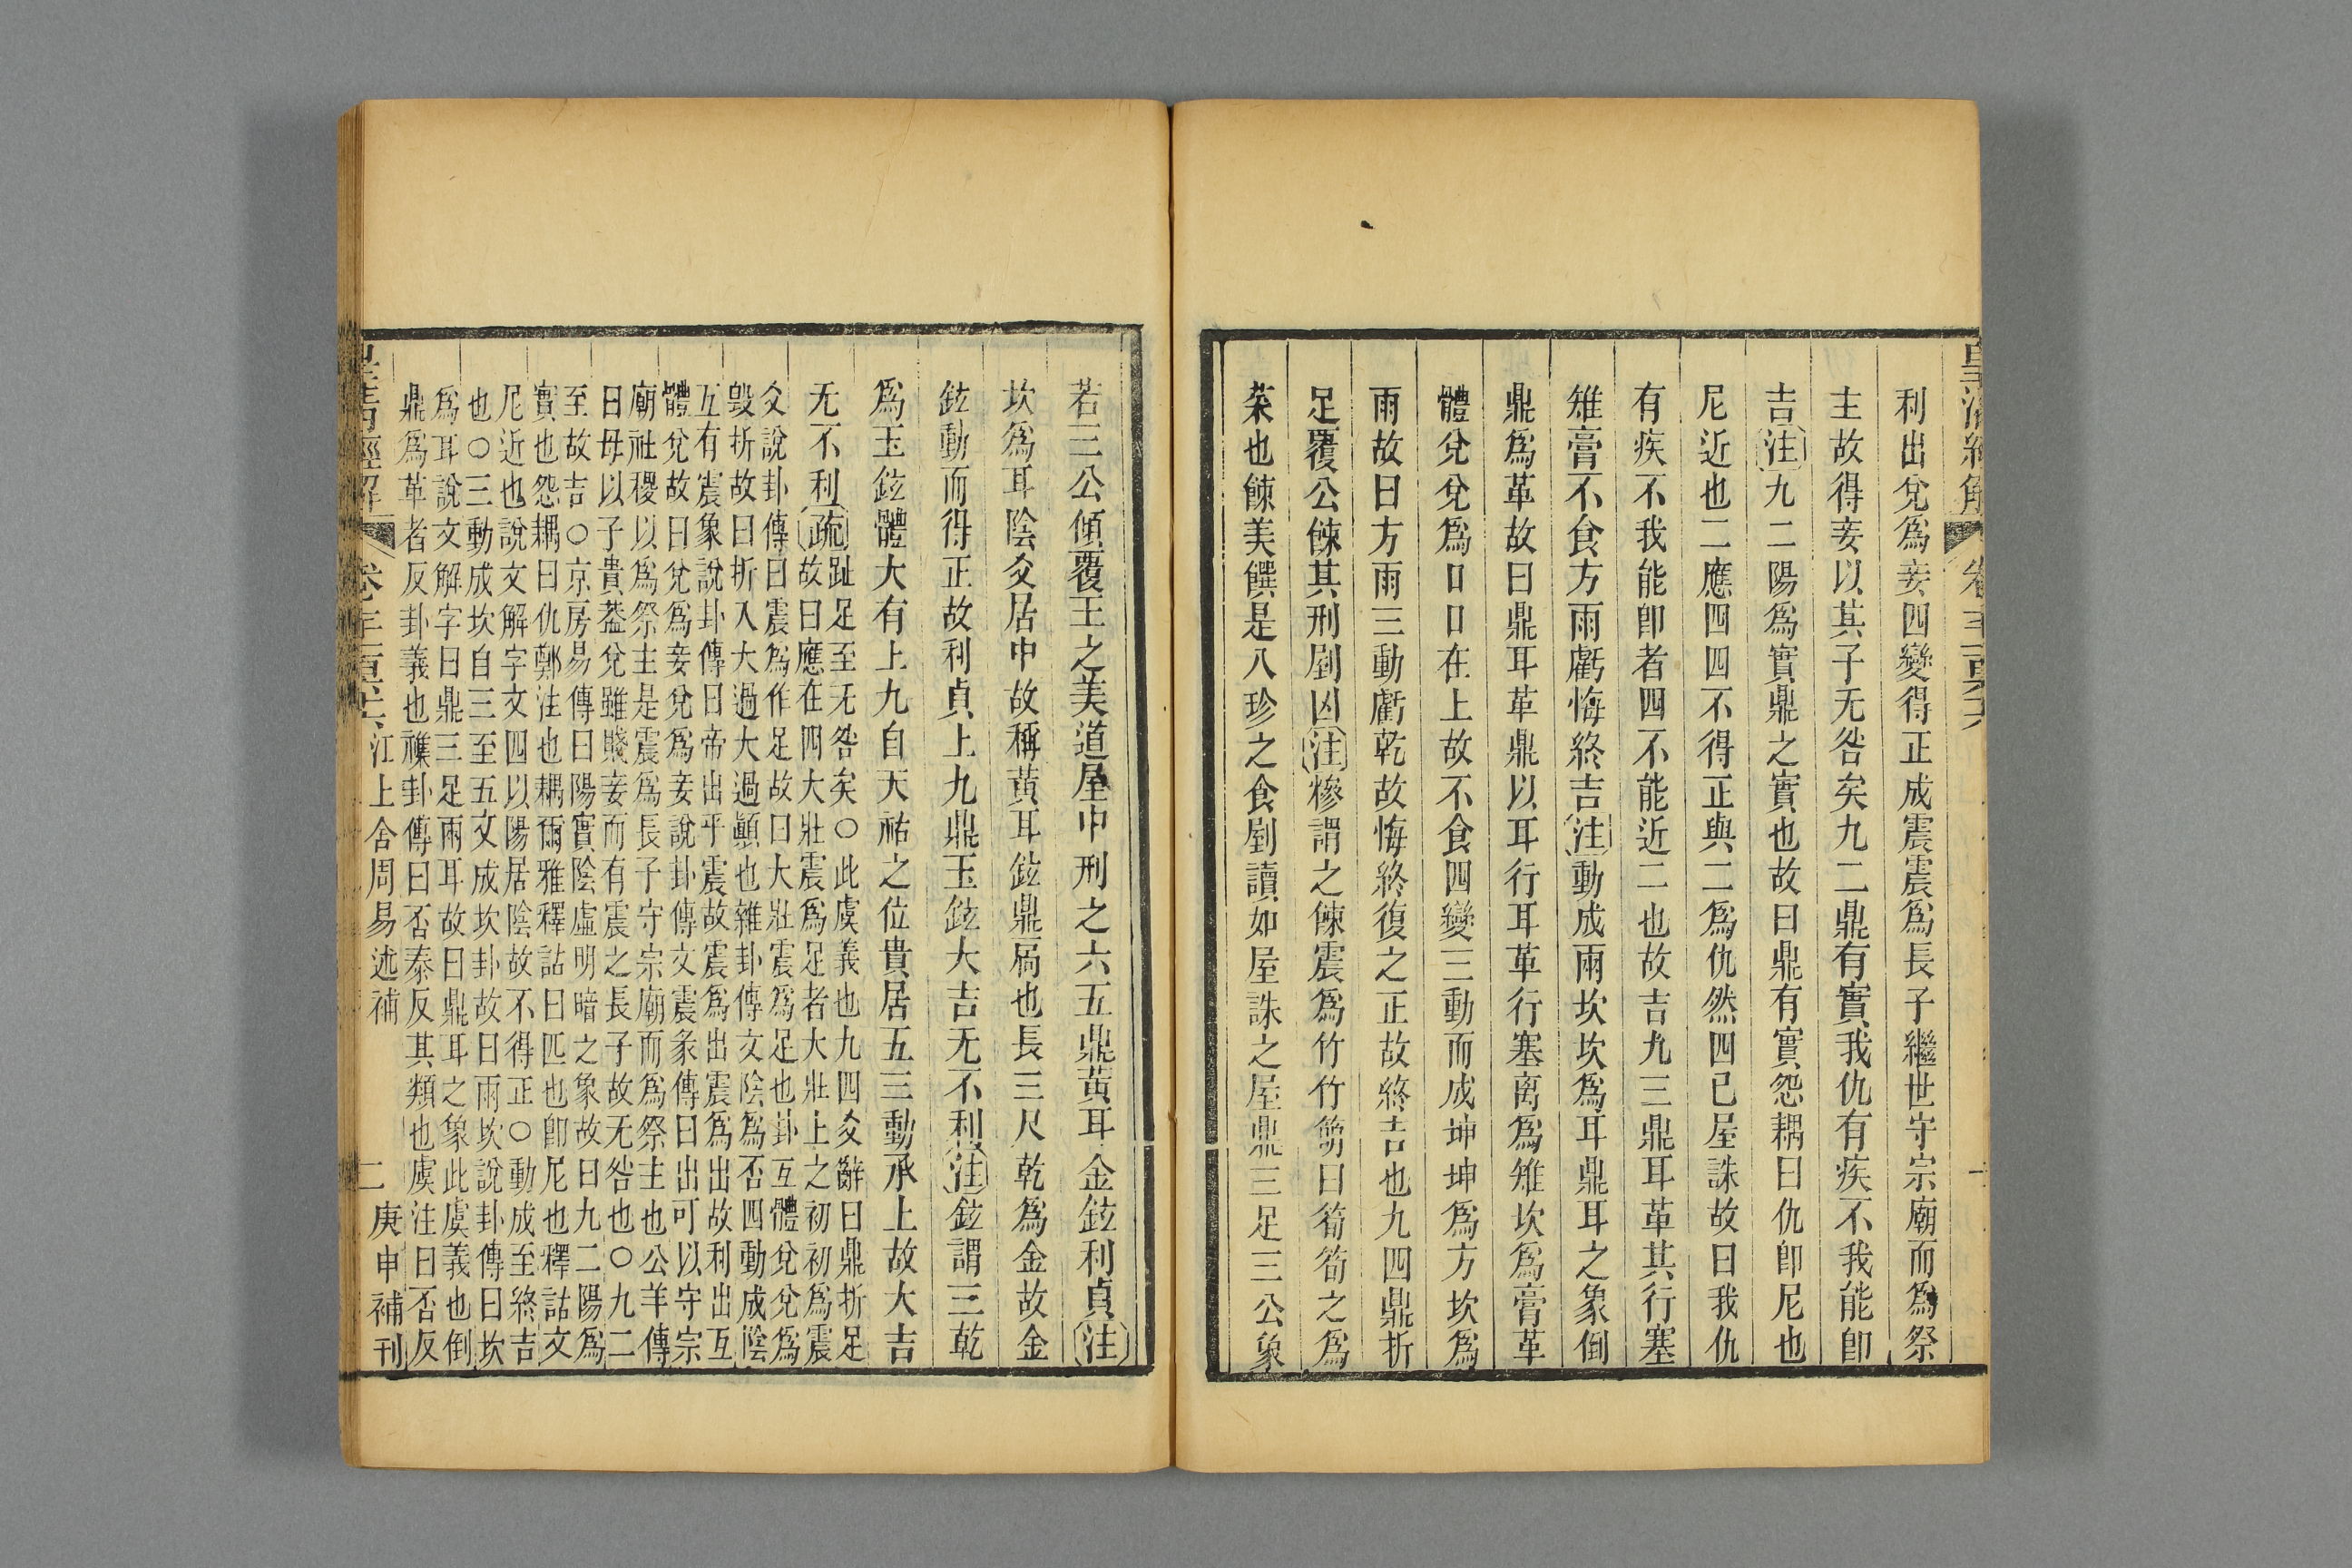 利出兌爲妾四變得正成震震爲長子繼世守宗廟而爲祭
主故得妾以其子无咎矣九二鼎有實我仇有疾不我能卽
吉注九二陽爲實鼎之實也故曰鼎有實怨耦曰仇卽尼也
尼近也二應四四不得正與二爲仇然四已屋誅故曰我仇
有疾不我能卽者四不能近二也故吉九三鼎耳革其行塞
雉膏不食方雨虧悔終吉注動成兩坎坎爲耳鼎耳之象倒
鼎爲革故曰鼎耳革鼎以耳行耳革行塞离爲雉坎爲膏革
體兌兌爲口口在上故不食四變三動而成坤坤爲方坎爲
雨故曰方雨三動虧乾故悔終復之正故終吉也九四鼎折
足覆公餗其刑剭凶注糝謂之餗震爲竹竹萌曰筍筍之爲
菜也餗美饌是八珍之食剭讀如屋誅之屋鼎三足三公象
若三公傾覆王之美道屋中刑之六五鼎黃耳金鉉利貞注
坎爲耳陰爻居中故稱黃耳鉉鼎扃也長三尺乾爲金故金
鉉動而得正故利貞上九鼎玉鉉大吉无不利注鉉謂三乾
爲玉鉉體大有上九自天祐之位貴居五三動承上故大吉
无不利疏
趾足至无咎矣○此虞義也九四爻辭曰鼎折足
故曰應在四大壯震爲足者大壯上之初初爲震
爻說卦傳曰震爲作足故曰大壯震爲足也卦互體兌兌爲
毀折故曰折入大過大過顚也雜卦傳文陰爲否四動成陰
互有震象說卦傳曰帝出乎震故震爲出震爲出故利出互
體兌故曰兌爲妾兌爲妾說卦傳文震彖傳曰出可以守宗
廟社稷以爲祭主是震爲長子守宗廟而爲祭主也公羊傳
曰母以子貴蓋兌雖賤妾而有震之長子故无咎也○九二
至故吉○京房易傳曰陽實陰虛明暗之象故曰九二陽爲
實也怨耦曰仇鄭注也耦爾雅釋詁曰匹也卽尼也釋詁文
尼近也說文解字文四以陽居陰故不得正○動成至終吉
也○三動成坎自三至五爻成坎卦故曰雨坎說卦傳曰坎
爲耳說文解字曰鼎三足兩耳故曰鼎耳之象此虞義也倒
鼎爲革者反卦義也襍卦傳曰否泰反其類也虞注曰否反
江上舍周易述補
二
庚申補刊